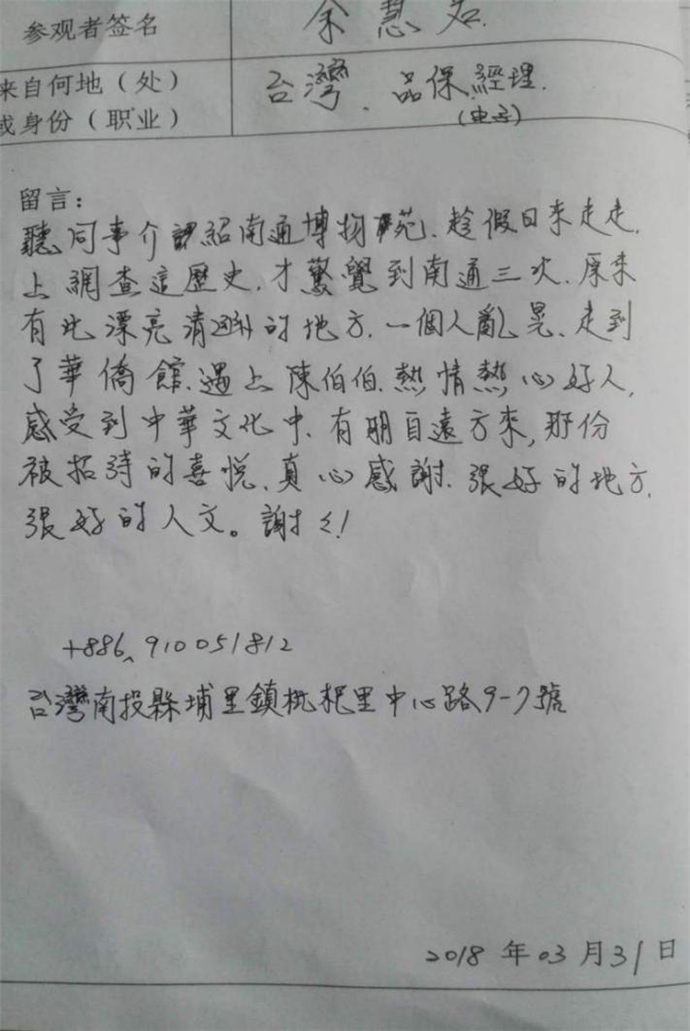 参观者签名 余慧君
来自何地（处） 台灣、品保經理.
或身份（职业） (电子)
留言：
聽同事介紹南通博物苑、趁假日來走走.
上網查這歷史.才驚覺到南通三次.原来
有此漂亮清幽的地方.一個人亂晃、走到
了華僑館.遇上陳伯伯.热情热心好人,
感受到中華文化中、有朋自遠方來,那份
被招待的喜悅、真心感謝.很好的地方.
很好的人文。謝々!
+886、910051812
台灣南投縣埔里鎮枇杷里中心路9-7號
2018 年 03 月 31 日